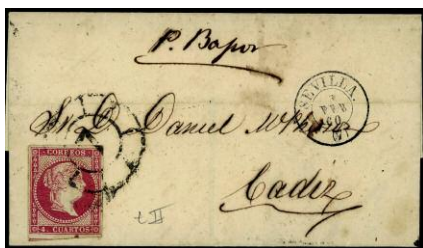 P. Bapor
SEVILLA.
FEB
60
Sr. D. Daniel
Cadiz
CORREOS
4 CUARTOS
t II